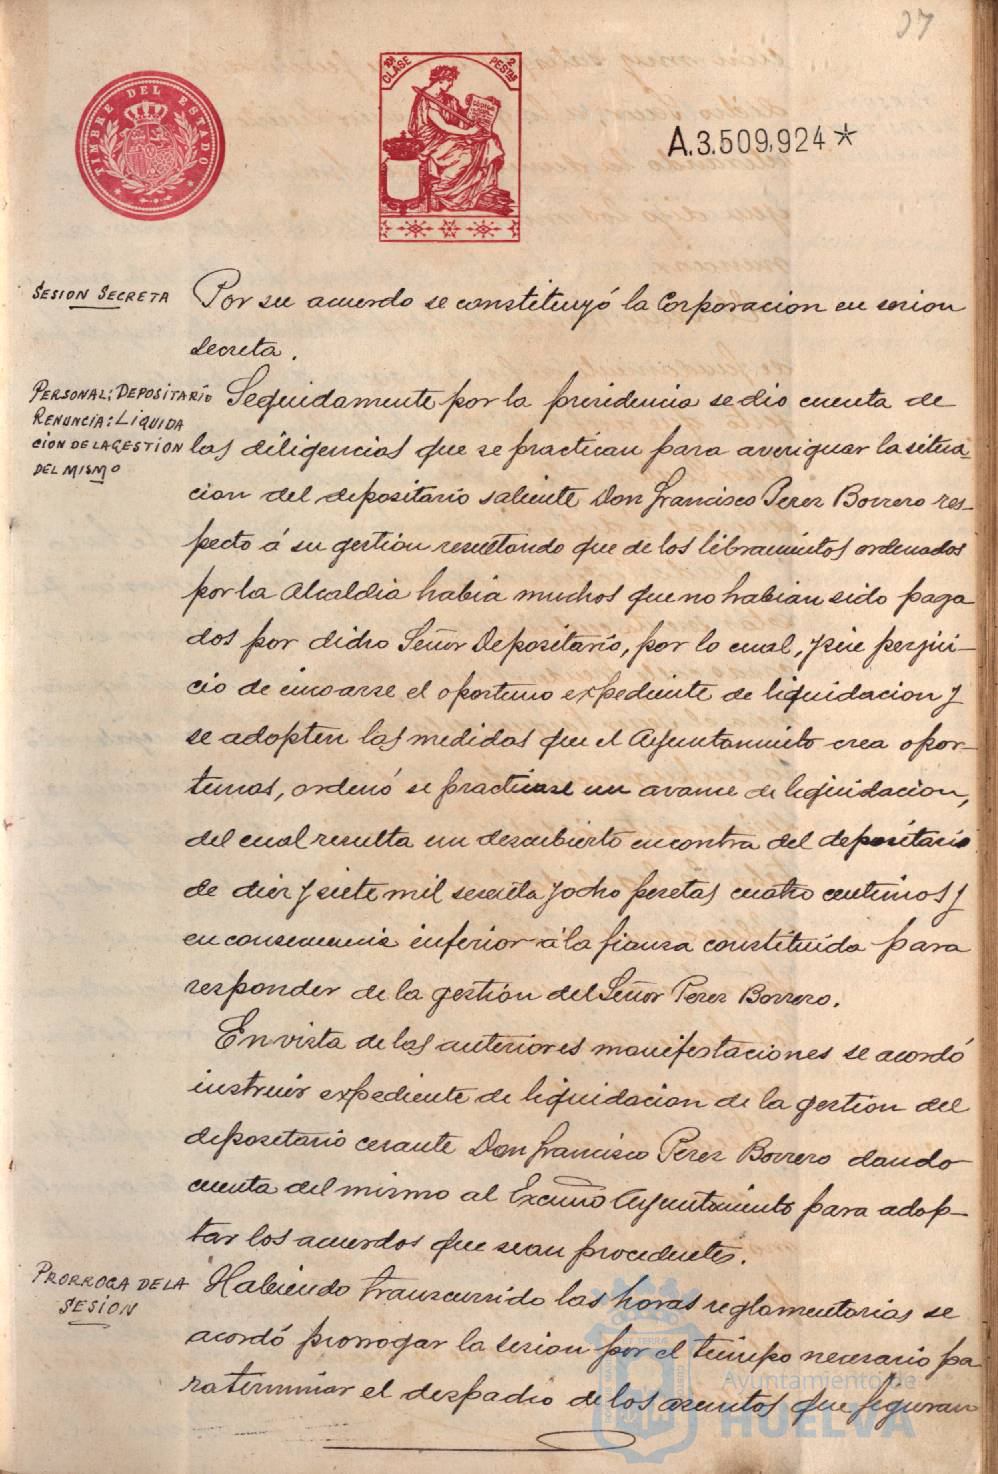 37
TIMBRE DEL ESTADO
10ª CLASE
2 PESTAS
CODIGO
A.3.509,924*
SESION SECRETA
Por su acuerdo se constituyó la Corporacion en sesion
secreta.
PERSONAL: DEPOSITARIO
RENUNCIA: LIQUIDA
CION DE LA GESTION
DEL MISMO
Seguidamente por la presidencia se dio cuenta de
las diligencias que se practican para averiguar la situa-
cion del depositario saliente Don Francisco Perez Borrero res-
pecto á su gestion resultando que de los libramientos ordenados
por la Alcaldia habia muchos que no habian sido paga
dos por dicho Señor Depositario, por lo cual, y sin perjui-
cio de incoarse el oportuno expediente de liquidacion y
se adopten las medidas que el Ayuntamiento crea opor-
tunas, ordenó se practicase un avance de liquidacion,
del cual resulta un descubierto en contra del depositario
de diez y siete mil sesenta y ocho pesetas cuatro centimos y
en consecuencia inferior á la fianza constituida para
responder de la gestion del Señor Perez Borrero.
En vista de las anteriores manifestaciones se acordó
instruir expediente de liquidacion de la gestion del
depositario cesante Don Francisco Perez Borrero dando
cuenta del mismo al Excmo Ayuntamiento para adop-
tar los acuerdos que sean procedentes.
PRORROGA DE LA
SESION
Habiendo transcurrido las horas reglamentarias se
acordó prorrogar la sesion por el tiempo necesario pa
ra terminar el despacho de los asuntos que figuran
Ayuntamiento de
HUELVA